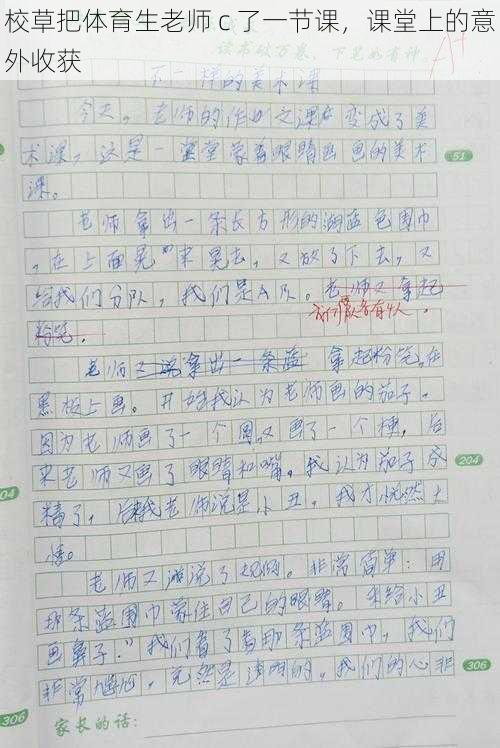 校草把体育生老师ｃ了一节课，课堂上的意
外收获
读书破万卷，下笔如有神
A+
不一样的美术课
今天，老师的作业之课 变成了美
术课，这是一堂蒙着眼睛画画的美术
课。
51
老师拿出一条长方形的湖蓝色围巾
，在上面晃来晃去，又放了下去，又
给我们分队，我们是A队。老师又拿起
我们 各有4人。
粉笔，
老师又说拿出一条蓝 拿起粉笔，在
黑板上画。开始我认为老师画的茄子，
因为老师画了一个圆又画了一个 ，后
来老师又画了眼睛和嘴。我认为茄子成
204
04
精了，后 老师说是小丑，我才恍然大
悟。
老师又 说了规则。非常简单：用
那条蓝围巾蒙住自己的眼睛。来给小丑
画鼻子.”我们看了看那条蓝围巾，我们
非常 ，竟然是透明的，我们的心非
306
306
家长的话：